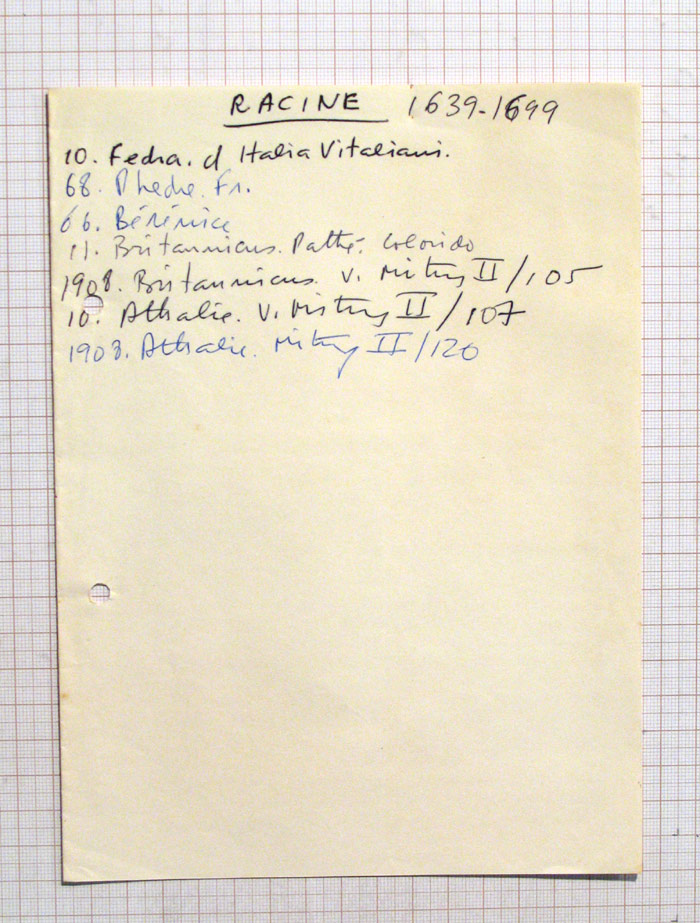 RACINE 1639-1699
10. Fedra. d Italia Vitaliani.
68. Phedre. Fr.
66. Bérénice
11. Britannicus. Pathé. Colorido
1908. Britannicus. V. Mitry II/105
10. Athalie. V. Mitry II/107
1908. Athalie. Mitry II/120